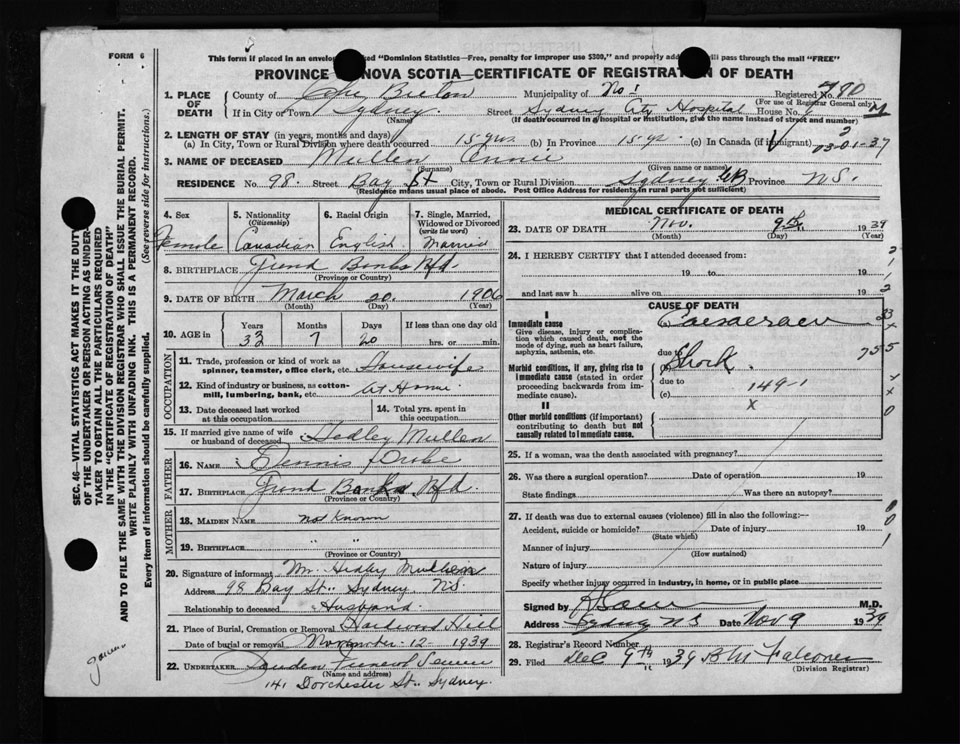 FORM 6
This form if placed in an envelop ed "Dominion Statistics—Free, penalty for improper use $300," and properly add will pass through the mail "FREE"
PROVINCE NOVA SCOTIA—CERTIFICATE OF REGISTRATION OF DEATH
1. PLACE OF DEATH County of Cape Breton Municipality of No 1 Registered No.
(For use of Registrar General only)
If in City or Town Sydney Street Sydney City Hospital House No.
(Name) (If death occurred in a hospital or institution, give the name instead of street and number)
2. LENGTH OF STAY (in years, months and days)
(a) In City, Town or Rural Division where death occurred 15 yrs (b) In Province 15 yr. (c) In Canada (if immigrant)
03-01-37
3. NAME OF DECEASED Mullen Annie
(Surname) (Given name or names)
RESIDENCE No. 98. Street Bay St City, Town or Rural Division Sydney CB Province N.S.
(Residence means usual place of abode. Post Office Address for residents in rural parts not sufficient)
4. Sex Female
5. Nationality (Citizenship) Canadian
6. Racial Origin English
7. Single, Married, Widowed or Divorced (write the word) Married
8. BIRTHPLACE Grand Banks Nfd.
(Province or Country)
9. DATE OF BIRTH March 20. 1906
(Month) (Day) (Year)
10. AGE in Years 33 Months 7 Days 20 If less than one day old hrs. or min.
OCCUPATION
11. Trade, profession or kind of work as spinner, teamster, office clerk, etc. Housewife
12. Kind of industry or business, as cotton-mill, lumbering, bank, etc. At Home
13. Date deceased last worked at this occupation
14. Total yrs. spent in this occupation
15. If married give name of wife or husband of deceased Hedley Mullen
FATHER
16. NAME Dennis
17. BIRTHPLACE Grand Banks Nfd.
(Province or Country)
MOTHER
18. MAIDEN NAME not Known
19. BIRTHPLACE " "
(Province or Country)
20. Signature of informant Mr. Hedley Mullen
Address 98 Bay St. Sydney N.S.
Relationship to deceased Husband
21. Place of Burial, Cremation or Removal Hardwood Hill
Date of burial or removal November 12 1939
22. UNDERTAKER Funeral Service
(Name and address)
141 Dorchester St. Sydney.
MEDICAL CERTIFICATE OF DEATH
23. DATE OF DEATH Nov. 9th 1939
(Month) (Day) (Year)
24. I HEREBY CERTIFY that I attended deceased from:
19 to 19
and last saw h alive on 19
CAUSE OF DEATH
I
Immediate cause
Give disease, injury or complication which caused death, not the mode of dying, such as heart failure, asphyxia, asthenia, etc.
due to Shock.
Morbid conditions, if any, giving rise to immediate cause (stated in order proceeding backwards from immediate cause).
due to 149-1
(c)
x
II
Other morbid conditions (if important) contributing to death but not causally related to immediate cause.
25. If a woman, was the death associated with pregnancy?
26. Was there a surgical operation? Date of operation 19
State findings Was there an autopsy?
27. If death was due to external causes (violence) fill in also the following:—
Accident, suicide or homicide? Date of injury 19
(State which)
Manner of injury
(How sustained)
Nature of injury
Specify whether injury occurred in industry, in home, or in public place
Signed by M.D.
Address Sydney N S Date Nov 9 1939
28. Registrar's Record Number
29. Filed Dec 9th 1939 Falconer
(Division Registrar)
SEC. 46—VITAL STATISTICS ACT MAKES IT THE DUTY OF THE UNDERTAKER OR PERSON ACTING AS UNDERTAKER TO OBTAIN ALL THE PARTICULARS REQUIRED IN THE "CERTIFICATE OF REGISTRATION OF DEATH"
AND TO FILE THE SAME WITH THE DIVISION REGISTRAR WHO SHALL ISSUE THE BURIAL PERMIT.
WRITE PLAINLY WITH UNFADING INK. THIS IS A PERMANENT RECORD.
Every item of information should be carefully supplied. (See reverse side for instructions.)